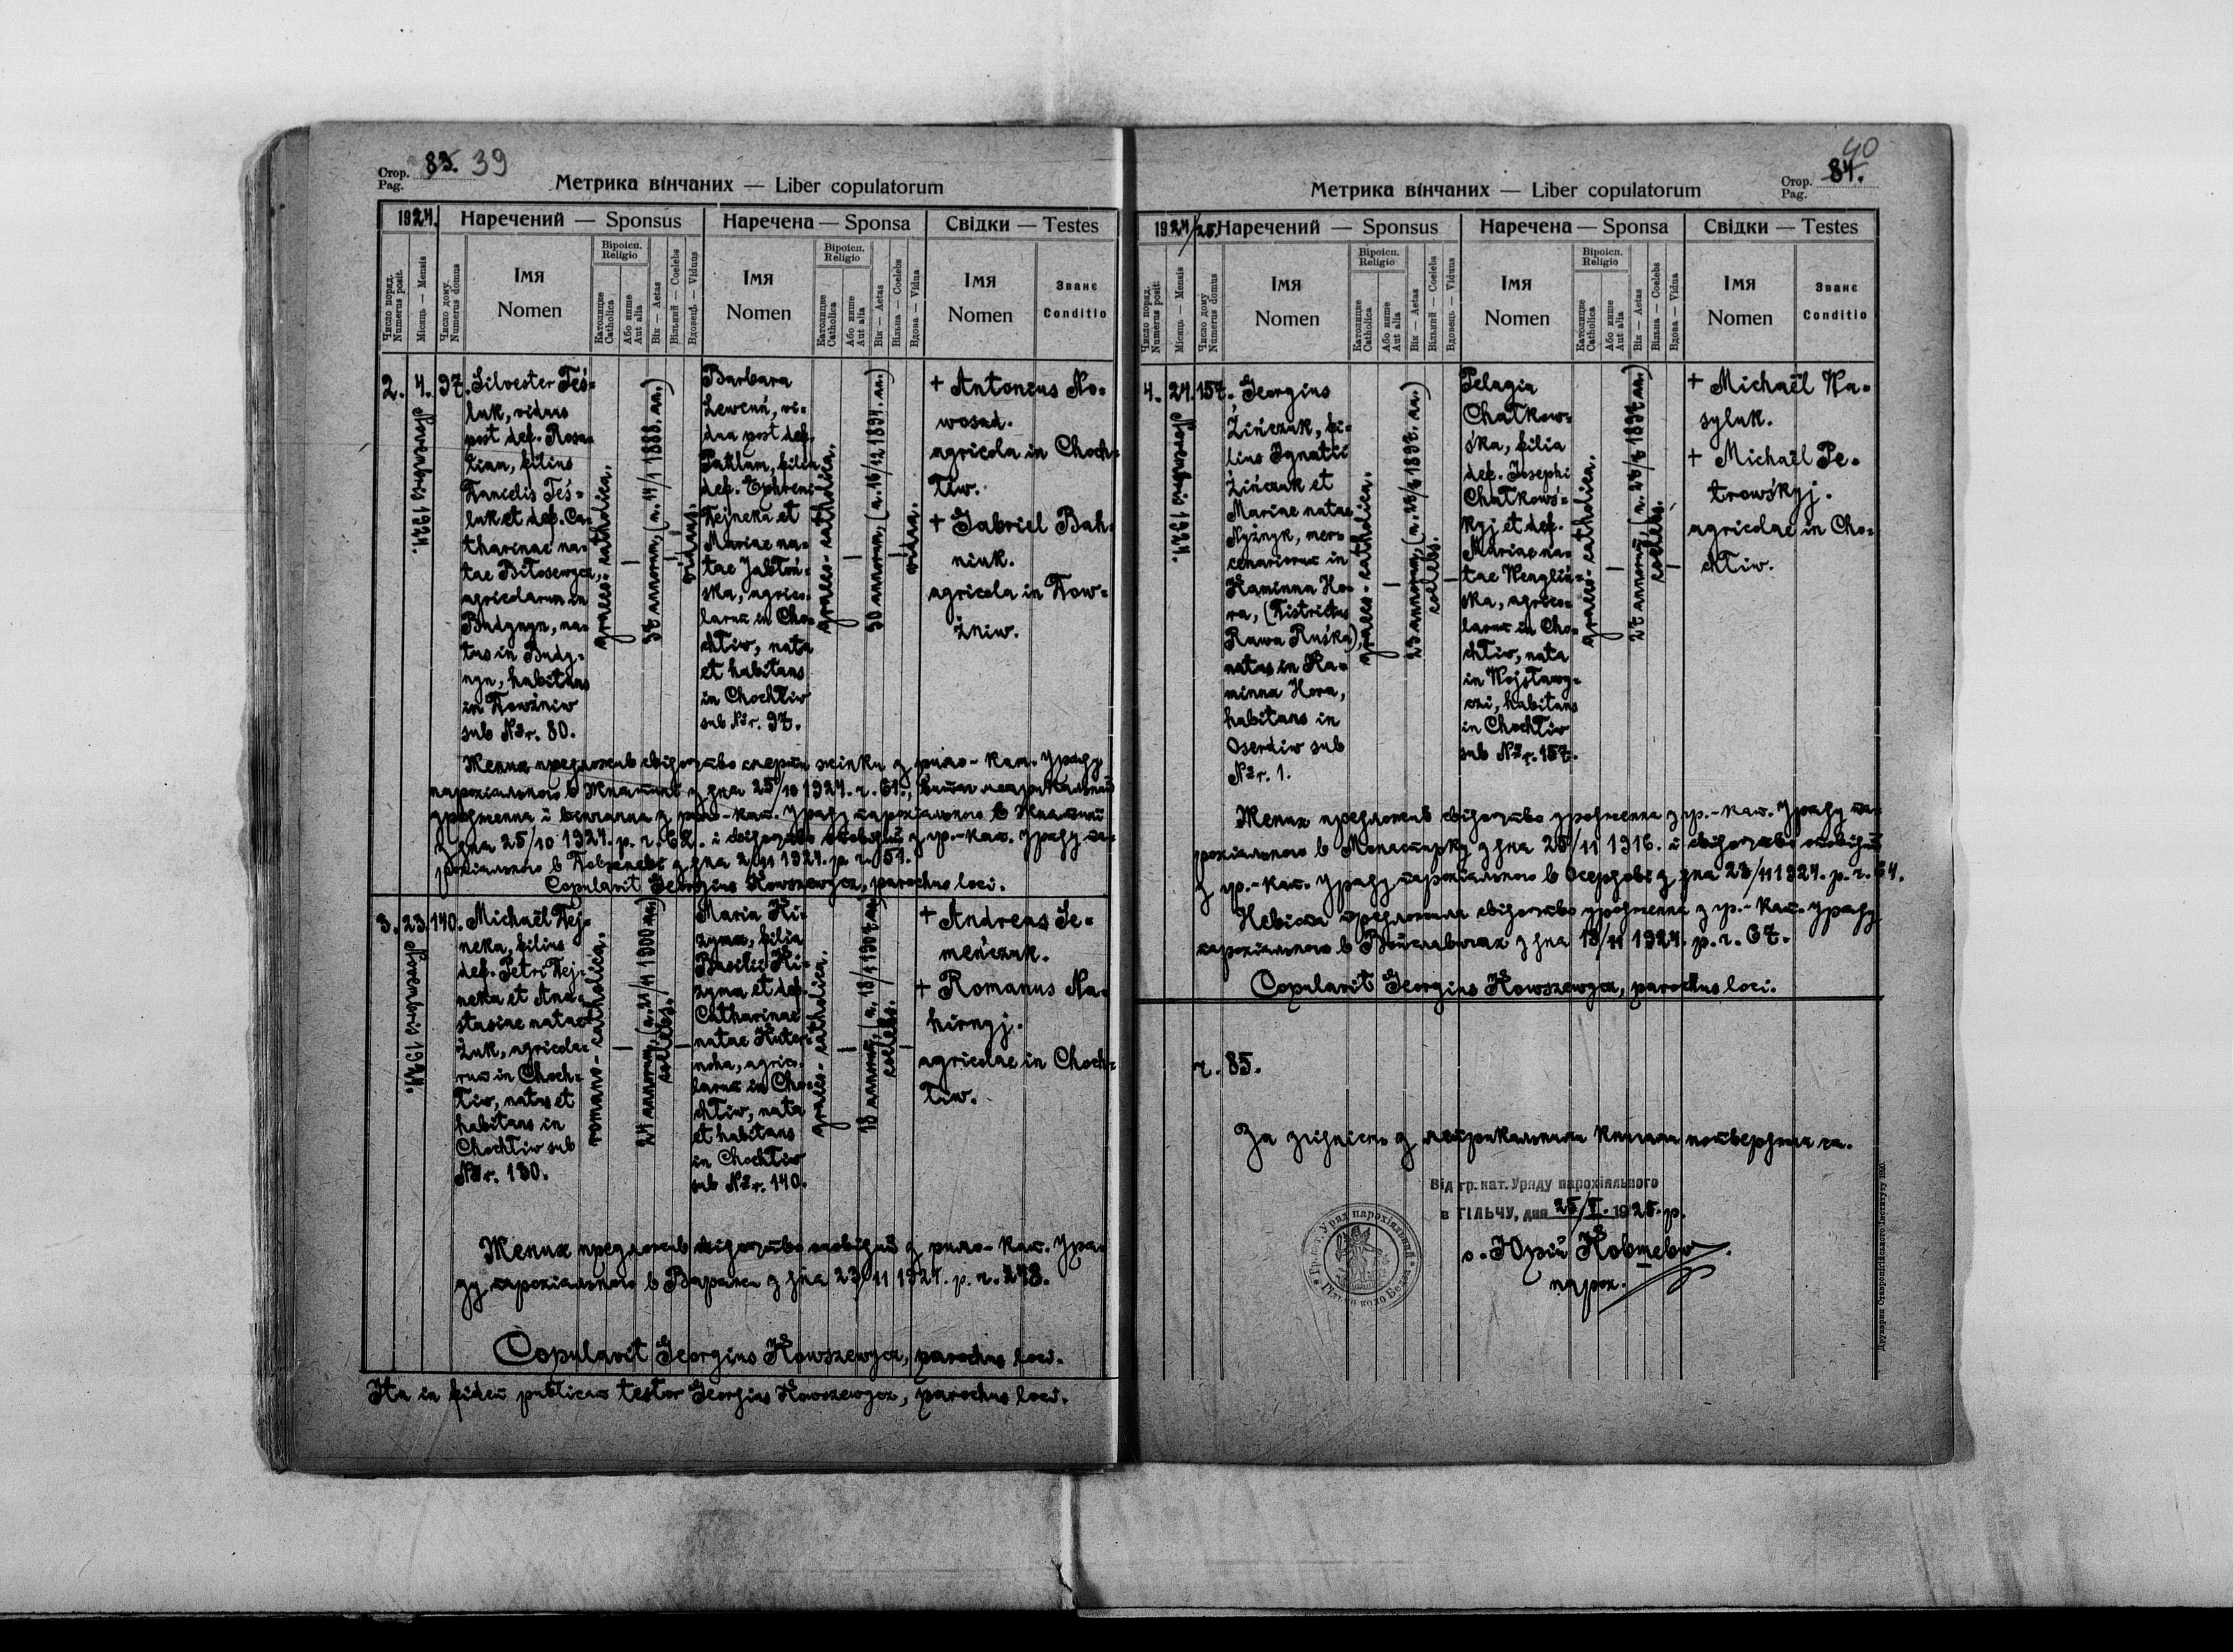 Стор. 83. 39
Pag.
Метрика вінчаних — Liber copulatorum
1924.
Наречений — Sponsus
Наречена — Sponsa
Свідки — Testes
Число поряд.
Numerus posit.
Місяць — Mensis
Число дому
Numerus domus
Імя
Nomen
Віроісп.
Religio
Католицке
Catholica
Або инше
Aut alia
Вік — Aetas
Вільний — Coelebs
Вдовець — Viduus
Імя
Nomen
Віроісп.
Religio
Католицке
Catholica
Або инше
Aut alia
Вік — Aetas
Вільна — Coelebs
Вдова — Vidua
Імя
Nomen
Званє
Conditio
2.
4.
Novembris 1924.
97.
Silvester Teś-
luk, viduus
post def. Rosa-
liam, filius
Teś-
luk et def. Ca-
tharinae na-
tae Biłosewycz,
agricolarum in
Budynyn, na-
tus in Budy-
nyn, habitans
in Żowżniw
sub Nr. 80.
graeco-catholica.
—
37 annorum, (n. 11/1 1888. an.)
—
viduus.
Barbara
Lewcuń, vi-
dua post def.
filia
def. Ephremi
Fejneka et
Mariae na-
tae Jabłoń-
ska, agrico-
larum in Cho-
chłiw, nata
et habitans
in Chochłiw
sub Nr. 97.
graeco-catholica.
—
30 annorum, (n. 16/12 1894. an.)
vidua.
+ Antonius No-
wosad.
agricola in Choch-
łiw.
+ Gabriel Bah-
niuk.
agricola in
żniw.
Жених предложив свідоцтво смерти жінки з римо-кат. Уряду
парохіяльного в з дня 25/10 1924. ч. 61.,
уродженна і вінчання з римо-кат. Уряду парохіяльного в
з дня 25/10 1924. р. ч. 62. і свідоцтво оповідий з гр.-кат. Уряду па-
рохіяльного в з дня 2/11 1924. р. ч. 51.
Copulavit Georgius Kowszewycz, parochus loci.
3.
23.
Novembris 1924.
140.
Michaël Fej-
neka, filius
def. Petri Fej-
neka et Ana-
stasiae natae
Żuk, agricola-
rum in Choch-
łiw, natus et
habitans in
Chochłiw sub
Nr. 130.
romano-catholica.
—
24 annorum, (n. 21/11 1900 an.)
coelebs.
—
Maria Ki-
zyma, filia
Basilii Ki-
zyma et def.
Catharinae
natae
agrico-
larum in Cho-
chłiw, nata
et habitans
in Chochłiw
sub Nr. 140.
graeco-catholica.
—
18 annorum, (n. 18/1 1907 an.)
coelebs.
—
+ Andreas Se-
meńczuk.
+ Romanus Na-
hirnyj.
agricolae in Choch-
łiw.
Жених предложив свідоцтво оповідий з римо-кат. Уря-
ду парохіяльного в Варяжи з дня 23/11 1924. р. ч. 278.
Copulavit Georgius Kowszewycz, parochus loci.
Ita in fidem publicam testor Georgius Kowszewycz, parochus loci.
40
Стор. 84.
Pag.
Метрика вінчаних — Liber copulatorum
1924/25.
Наречений — Sponsus
Наречена — Sponsa
Свідки — Testes
Число поряд.
Numerus posit.
Місяць — Mensis
Число дому
Numerus domus
Імя
Nomen
Віроісп.
Religio
Католицке
Catholica
Або инше
Aut alia
Вік — Aetas
Вільний — Coelebs
Вдовець — Viduus
Імя
Nomen
Віроісп.
Religio
Католицке
Catholica
Або инше
Aut alia
Вік — Aetas
Вільна — Coelebs
Вдова — Vidua
Імя
Nomen
Званє
Conditio
4.
24.
Novembris 1924.
157.
Georgius
Zińczuk, fi-
lius Ignatii
Zińczuk et
Mariae natae
Nyżnyk, mer-
cenariorum in
Kaminna Ho-
ra, (Districtus
Rawa Ruśka),
natus in Ka-
minna Hora,
habitans in
Oserdiw sub
Nr. 1.
graeco-catholica.
—
coelebs.
—
Pelagia
Chatkow-
śka, filia
def. Josephi
Chatkowś-
kyj et def.
Mariae na-
tae Wengliń-
ska, agrico-
larum in Cho-
chłiw, nata
in Wojsławy-
czi, habitans
in Chochłiw
sub Nr. 157.
graeco-catholica.
—
coelebs.
—
+ Michaël Wa-
syluk.
+ Michaël Pe-
trowśkyj.
agricolae in Cho-
chłiw.
Жених предложив свідоцтво уродження з гр.-кат. Уряду па-
рохіяльного в Монастирку з дня 25/11 1916. і свідоцтво оповідий
з гр.-кат. Уряду парохіяльного в Осердові з дня 23/11 1924. р. ч. 64.
Невіста предложила свідоцтво уродження з гр.-кат. Уряду
парохіяльного в Войславичах з дня 18/11 1924. р. ч. 67.
Copulavit Georgius Kowszewycz, parochus loci.
ч. 85.
За згідність з метрикальними книгами потверджаю ся.
Від гр. кат. Уряду парохіяльного
в ГІЛЬЧУ, дня 25/I. 1925. р.
о. Юрій Ковшевич
парох.
Друкарня Ставропігійського Інституту 1920.